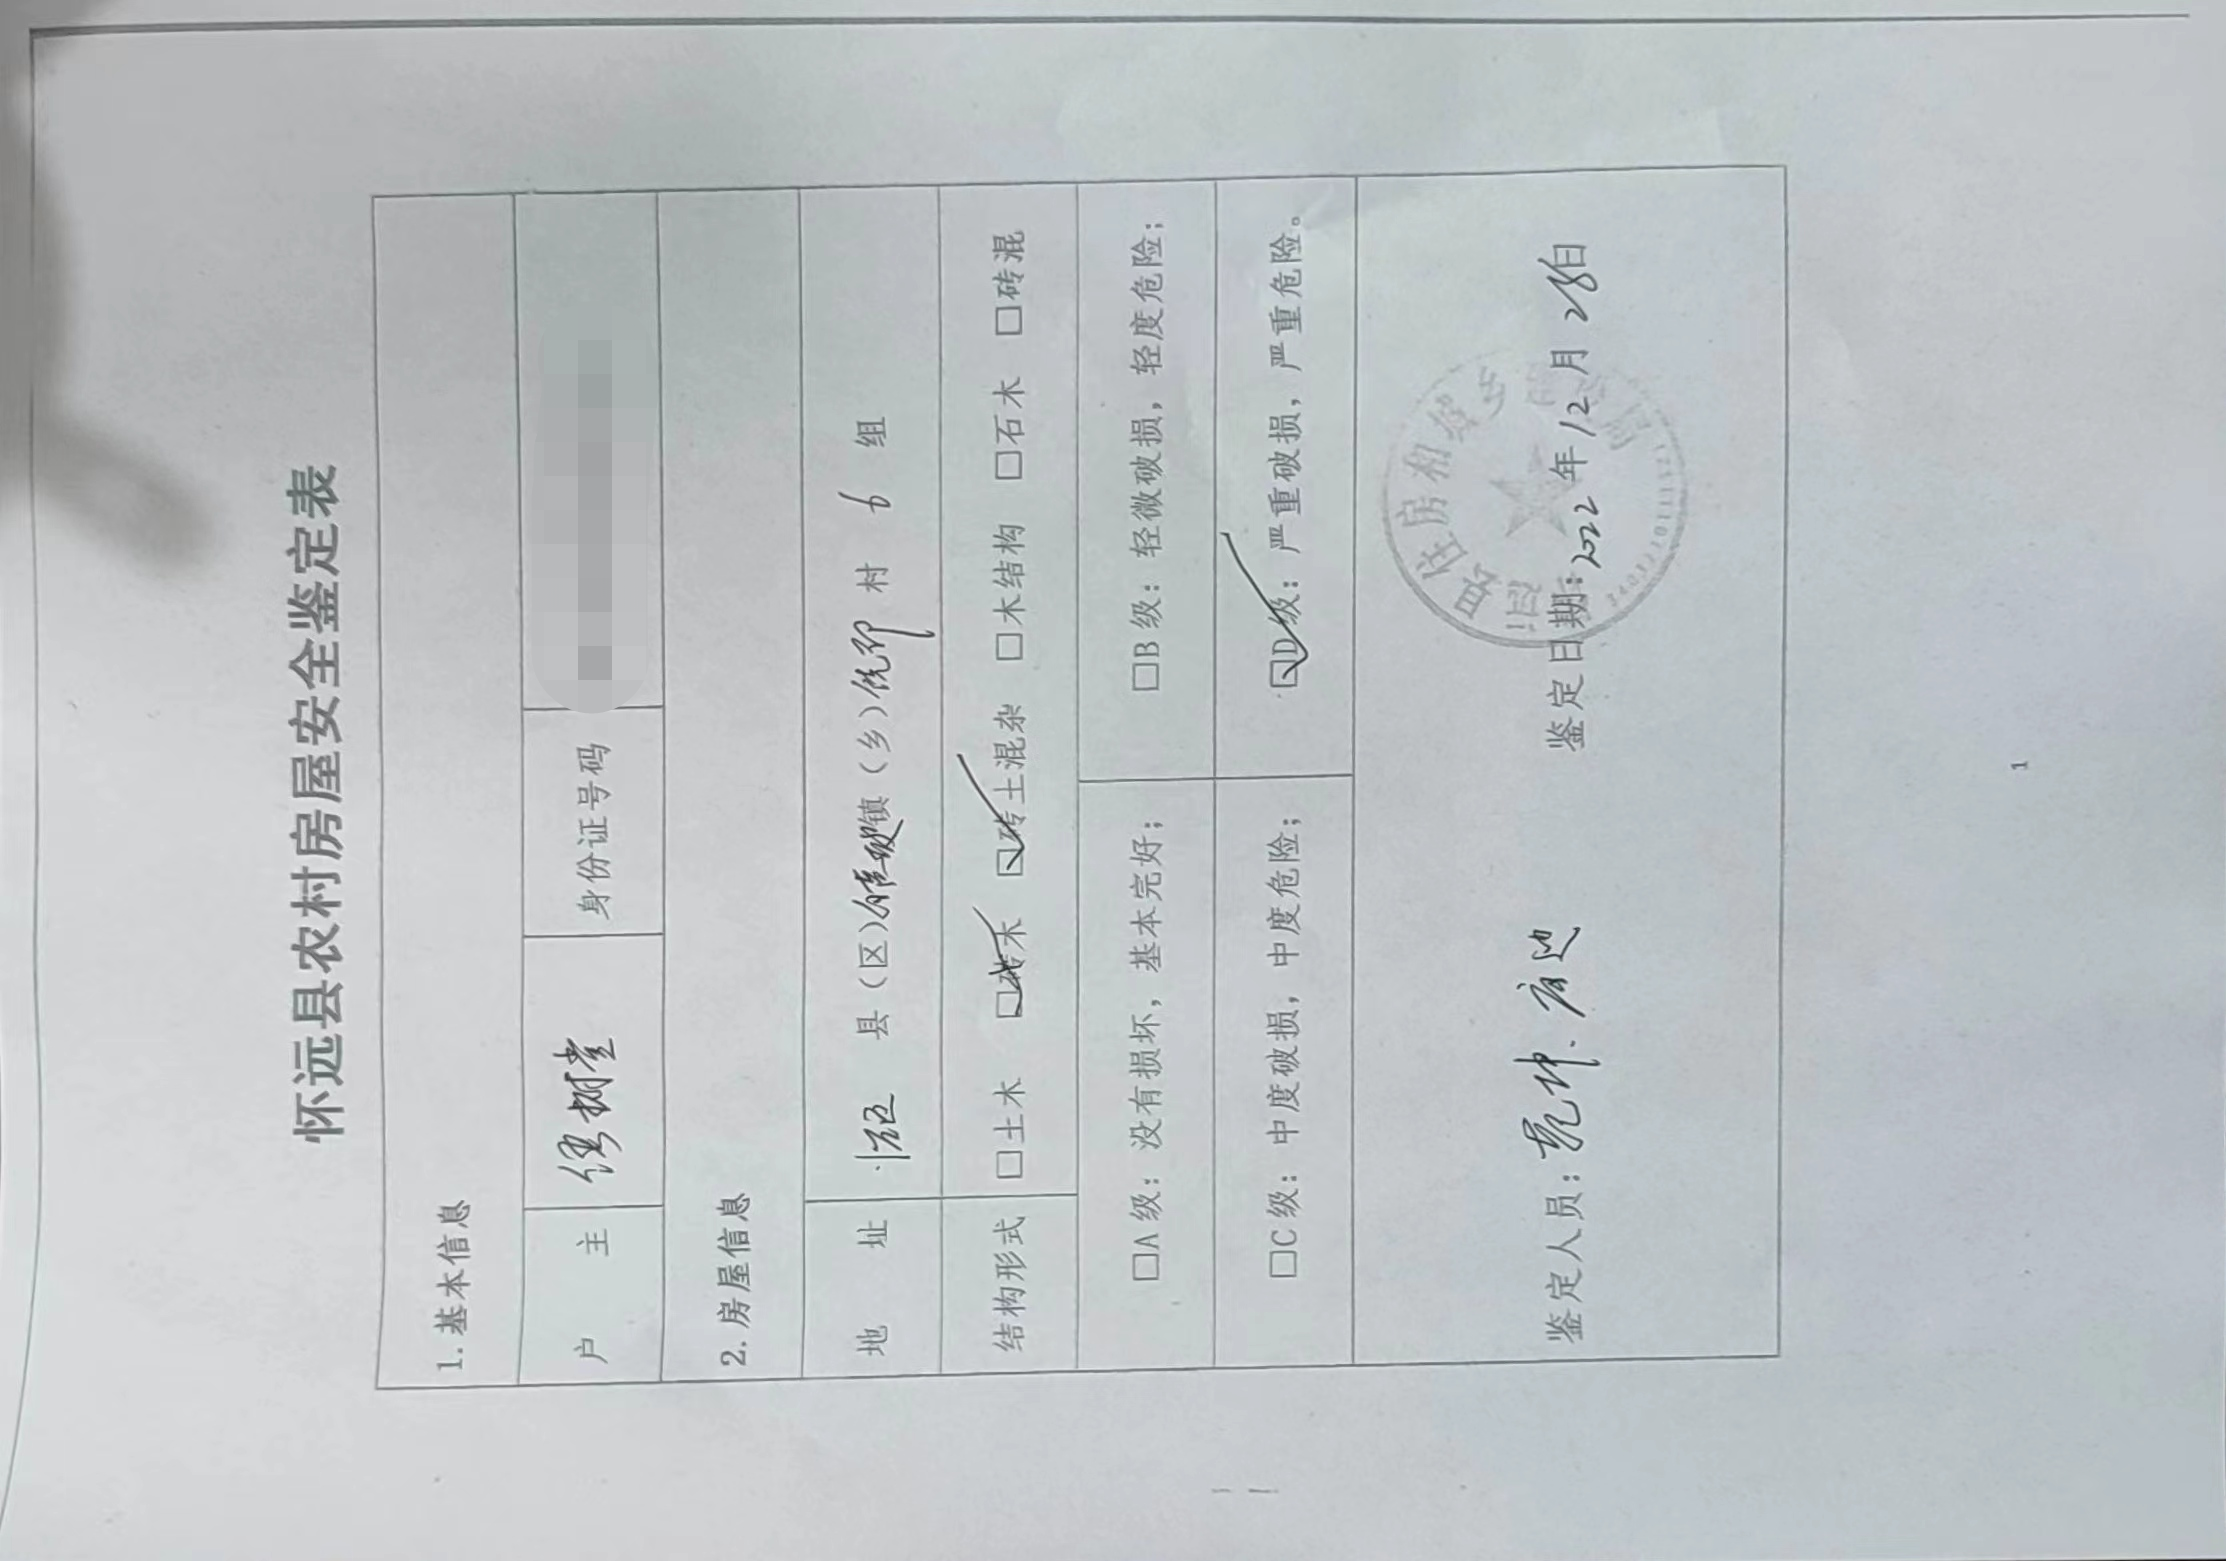 怀远县农村房屋安全鉴定表
1.基本信息
户 主 身份证号码
2.房屋信息
地 址 怀远 县（区） 镇（乡） 村 6 组
结构形式 □土木 ☑砖木 ☑砖土混杂 □木结构 □石木 □砖混
□A 级：没有损坏，基本完好； □B 级：轻微破损，轻度危险；
□C 级：中度破损，中度危险； ☑D 级：严重破损，严重危险。
县住房和城乡
鉴定人员： 鉴定日期：2022 年 12 月 28 日
1